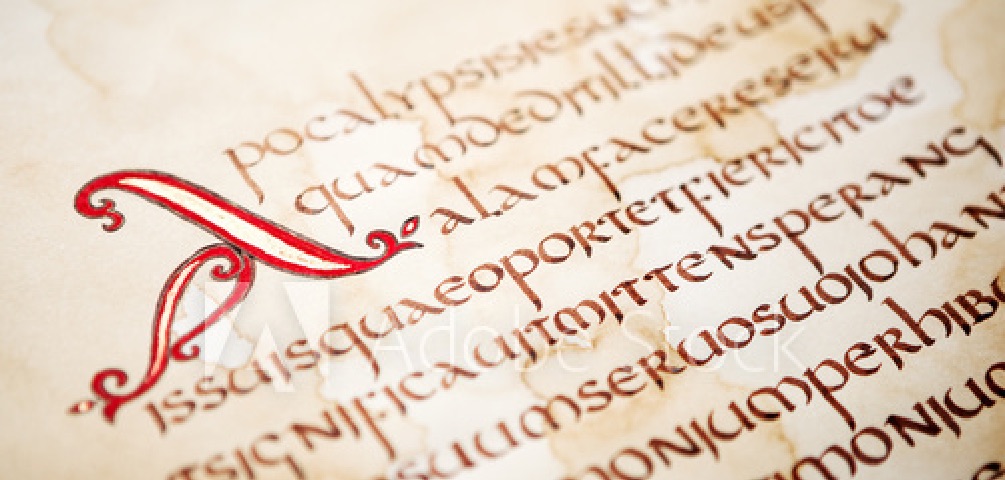 Apocalypsisiesuch
quamdedmillideusp
alamfacereseru
issuisquaeoportetfiericitoe
tsignificauitmittensperang
suumseruosuoiohan
moniumperhib
monium
Adobe Stock